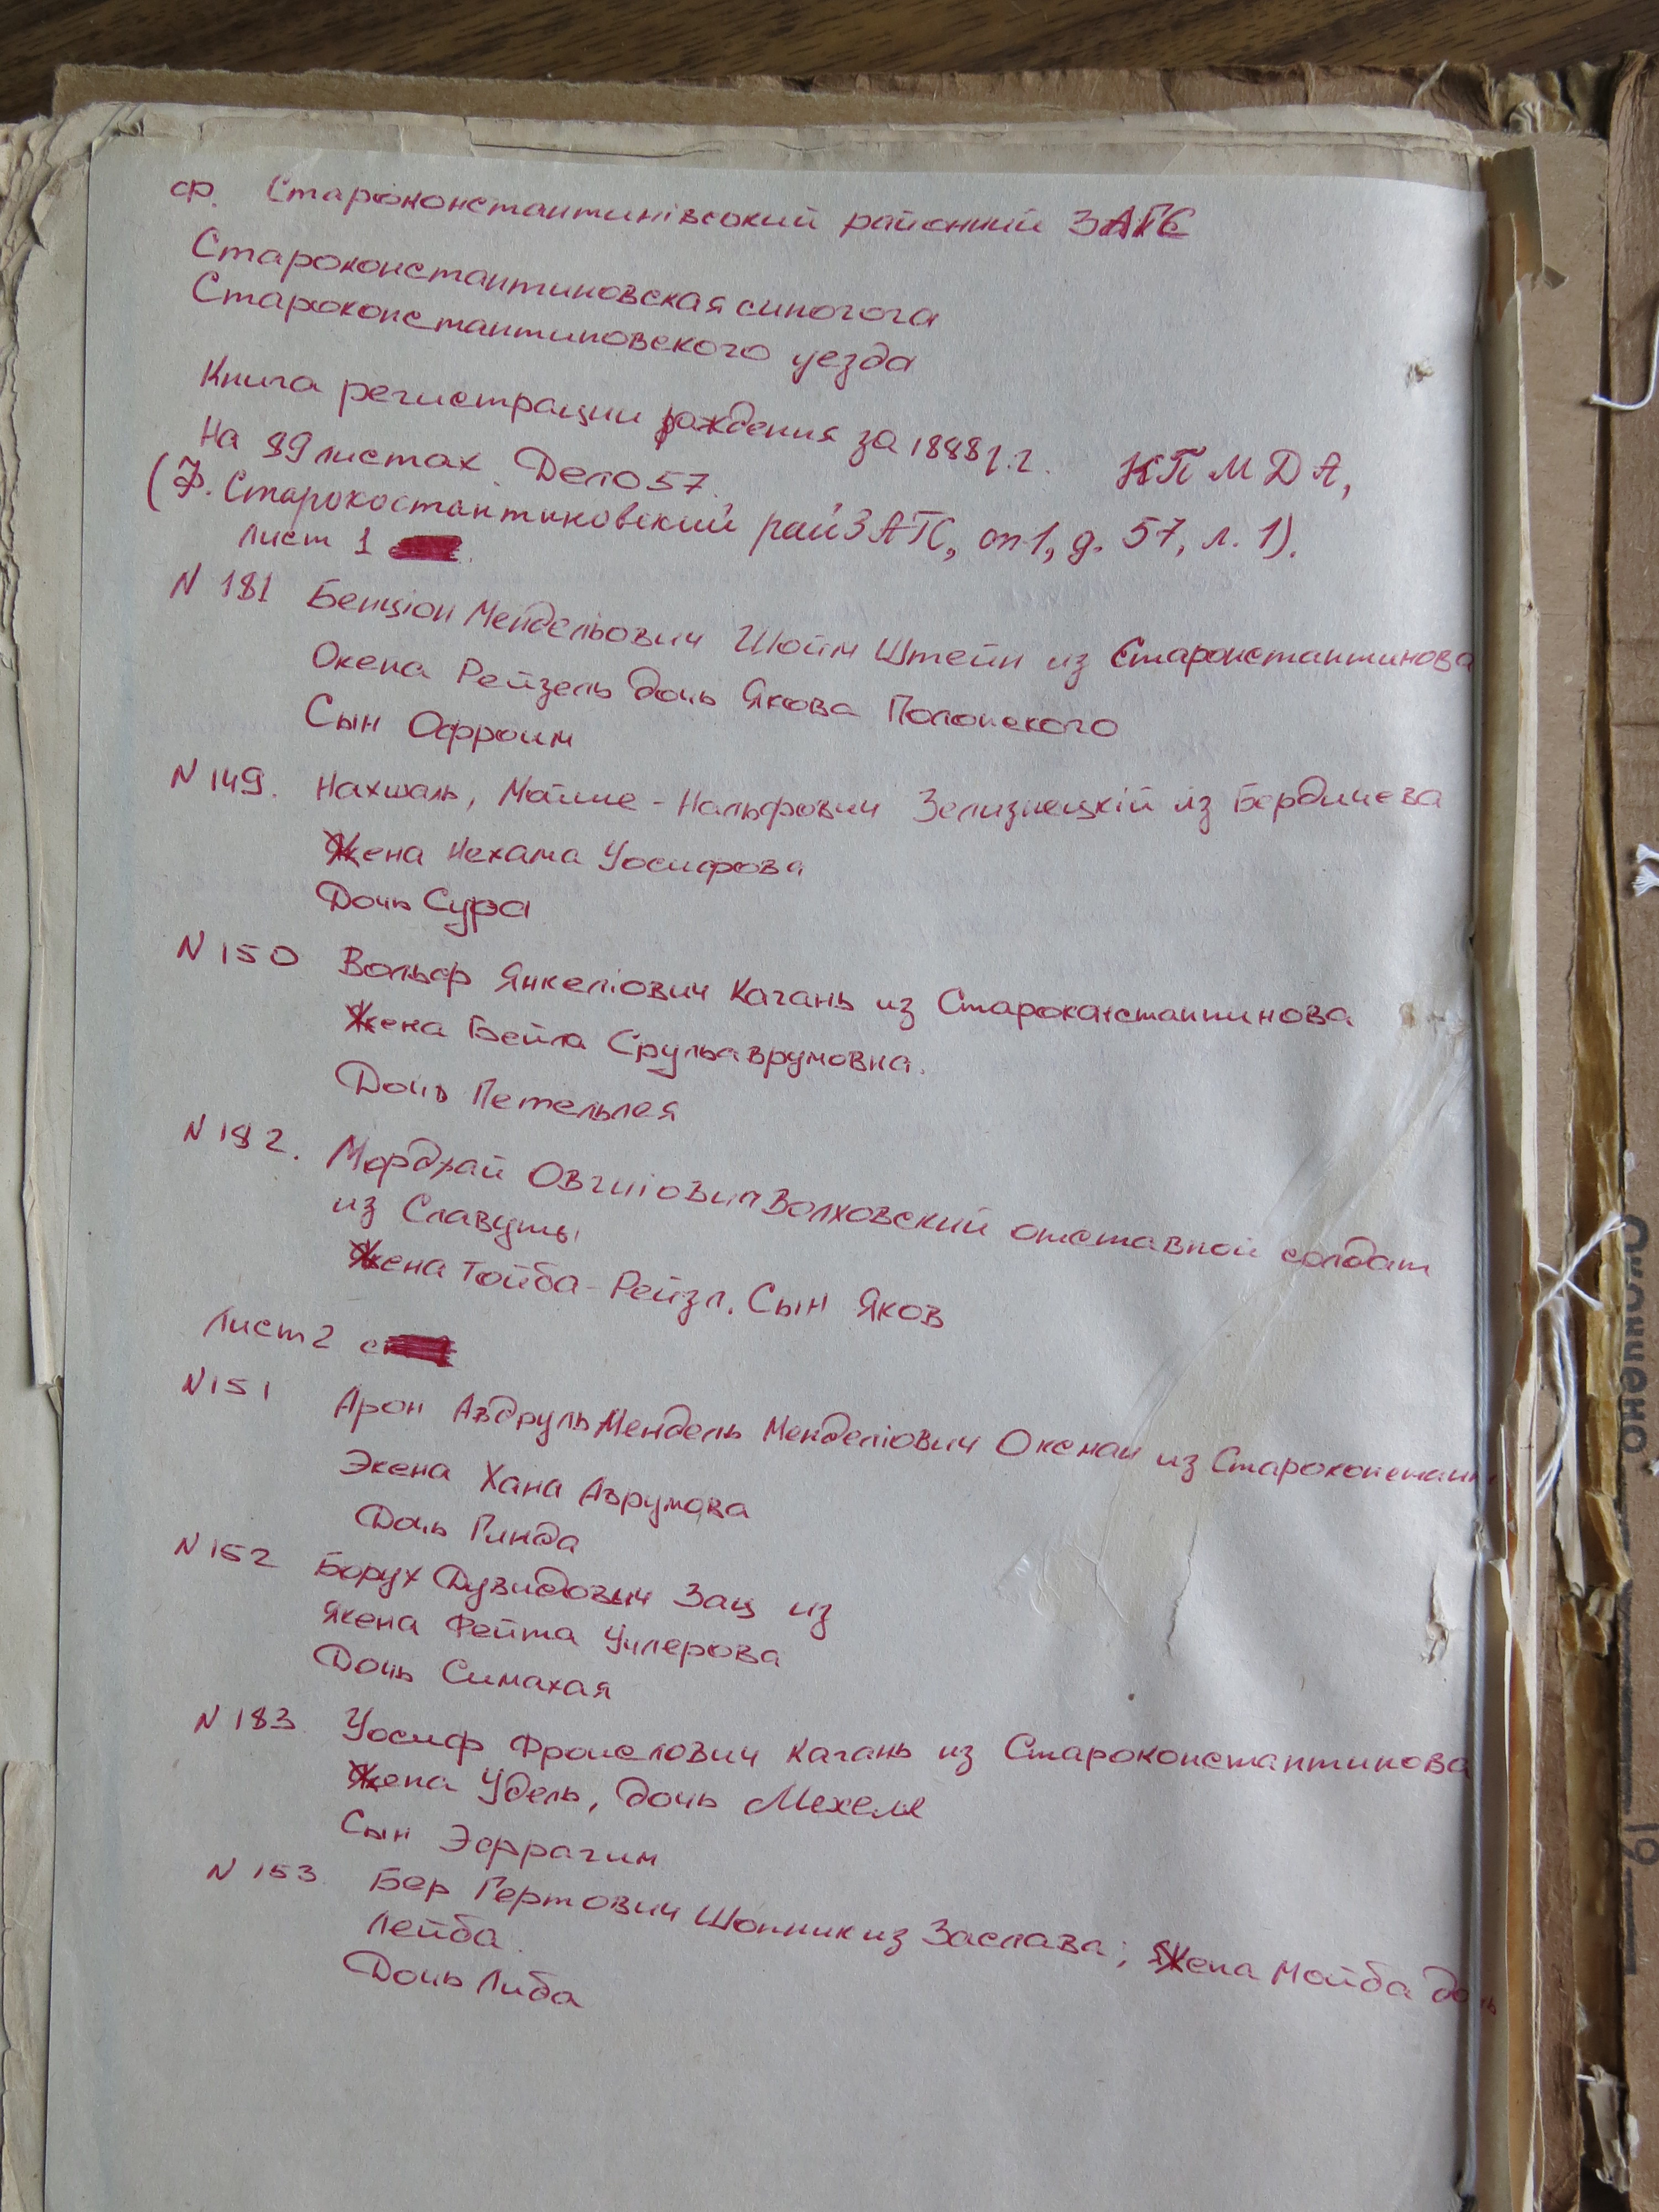 ф. Старіоконстантинівський районний ЗАГС
Староконстантиновская синогога
Староконстантиновского уезда
Книга регистрации рождения за 1888 г.г.
На 89 листах. Дело 57.
КПМДА,
(Ф. Старокостантиновский рай ЗАГС, оп 1, д. 57, л. 1).
лист 1
N 181 Бенціон Мендельович Шойм Штейн из Старонстантинова
Жена Рейзель дочь Якова Полонского
Сын Офроим
N 149. Нахшаль, Мойше-Нальфович Зелизнецкій из Бердичева
Жена Нехама Уосифова
Дочь Сура
N 150 Вольф Янкеліович Кагань из Староконстантинова
Жена Бейла Срульаврумовна.
Дочь Петельлея
N 182. Мордхай Овгшіович Волховский отставной солдат
из Славуты
Жена Тойба-Рейзл. Сын Яков
Лист 2 с
N 151 Арон Авдруль Мендель Менделіович Оксман из Староконстан
Жена Хана Аврумова
Дочь Гинда
N 152 Борух Дувидович Зац из
Жена Фейга Ушерова
Дочь Симахая
N 183 Уосиф Фроислович Кагань из Староконстантинова
Жена Удель, дочь Мехеля
Сын Эфрагим
N 153 Бер Гертович Шопник из Заслава; Жена Мойба дочь
Лейба.
Дочь Либа
Окончено
19